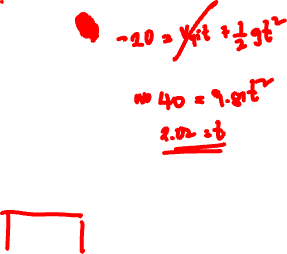 -20 = Vit + 1/2 gt²
40 = 9.81t²
2.02 = t